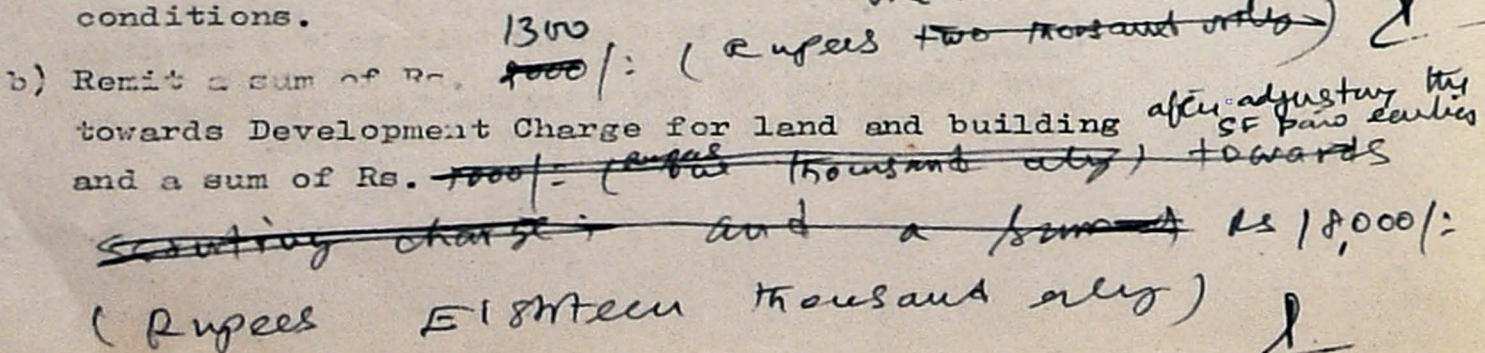 conditions.
1300
b) Remit a sum of Rs. 2000/- (Rupees two thousand only)
towards Development Charge for land and building after adjusting the
SF paid earlier
and a sum of Rs. 1000/- (Rupees thousand only) towards
scrutiny charge and a sum of Rs 18,000/-
(Rupees Eighteen thousand only)